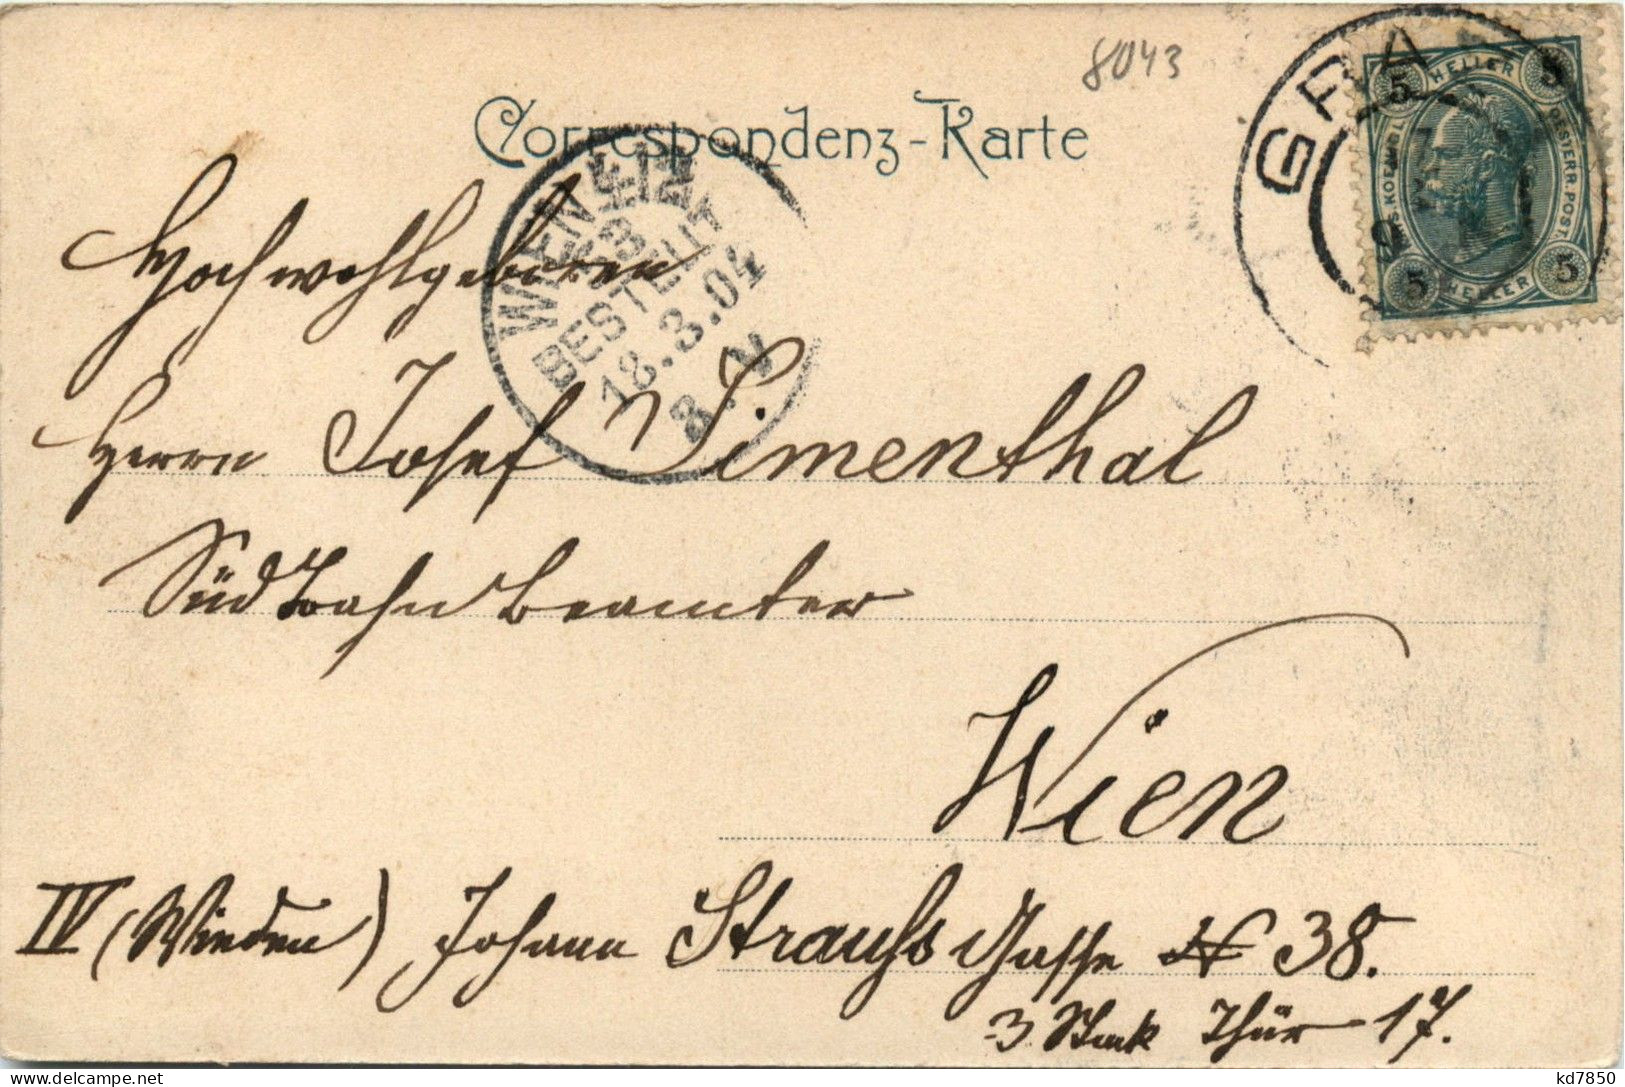 8043
Correspondenz-Karte
GRA
5 HELLER 5
KAIS. KOENIGL.
OESTERR. POST
5 HELLER 5
WIEN
BESTELLT
18.3.04
8. V
Hochwohlgeboren
Herrn Josef Simenthal
Südbahnbeamter
Wien
IV (Wieden) Johann Strauss Gasse N 38.
3. Stock Thür 17.
delcampe.net
kd7850